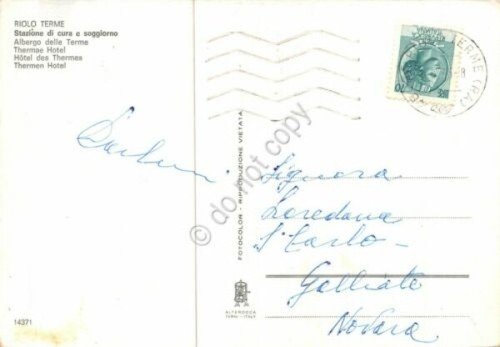 RIOLO TERME
Stazione di cura e soggiorno
Albergo delle Terme
Thermae Hotel
Hôtel des Thermes
Thermen Hotel
TERME (RA)
Signora
Loredana
"S. Carlo"
Galliate
Novara
FOTOCOLOR - RIPRODUZIONE VIETATA
ALTEROCCA
TERNI - ITALY
14371
do not copy